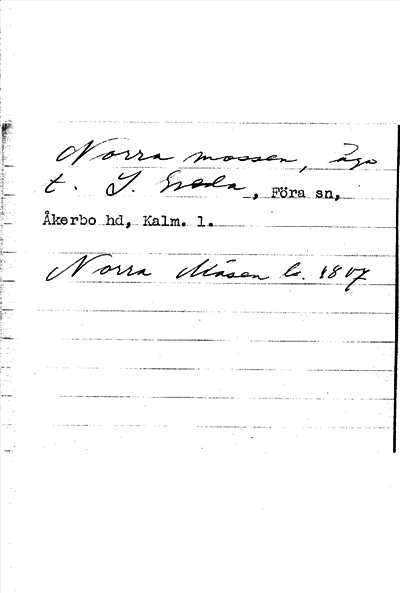 Norra mossen, äga
t. S. Greda, Föra sn,
Åkerbo hd, Kalm. l.
Norra Måsen ls. 1807